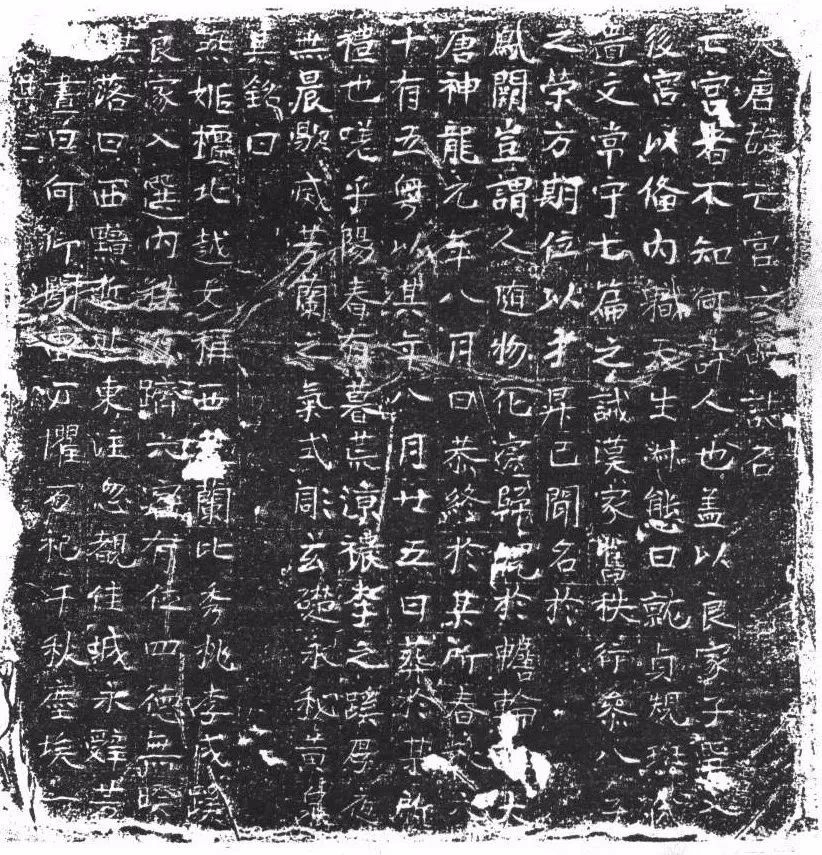 大唐故亡宮之誌石
亡宮者不知何許人也盖以良家子選入
後宮以俻内職天生淋態日就貞規班俻
遺文常守七篇之誡漢家舊秩行叅八子
之榮方期位以才昇已聞名於
鳳闕豈謂人隨物化處歸於蟾輪大
唐神龍元年八月日恭終於某所春秋六
十有五粤以其年八月廿五日葬於某所
禮也嗟乎陽春有暮荒凉穠李之蹊厚夜
無晨歇滅芳蘭之氣式彫玄礎永秘黄
其銘曰
燕姬摽北越女稱西蘭比秀桃李成蹊
良家入選内有躋六宮有位四德無暌
其落日西黯逝水東注忽覩佳城永辭芳
晝何所万懼西杞千秋塵埃一
其二